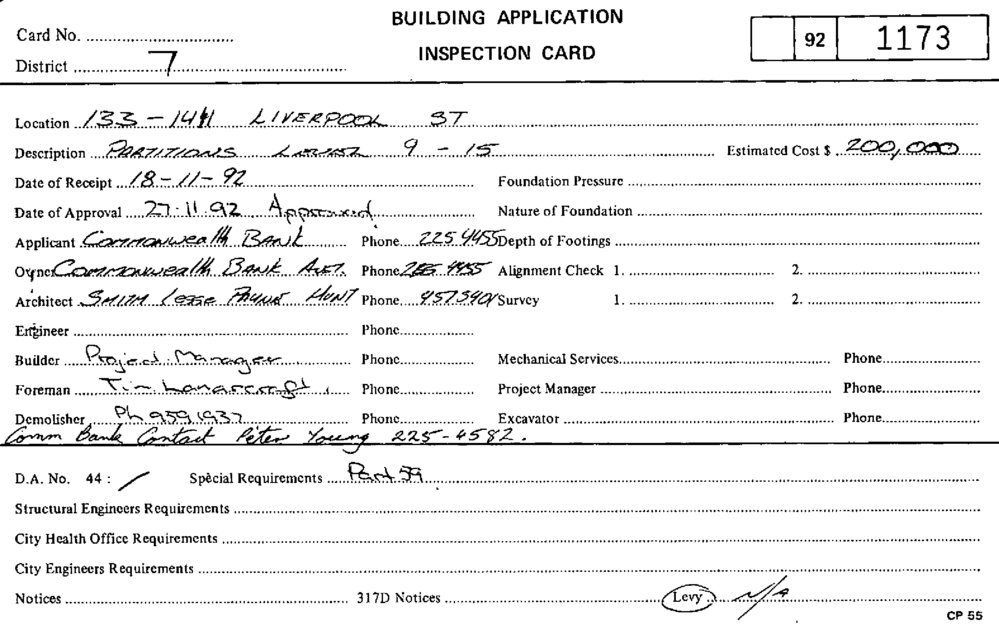 BUILDING APPLICATION
Card No.
92 1173
INSPECTION CARD
District 7
Location 133-141 LIVERPOOL ST
Description PARTITIONS 9-15 Estimated Cost $ 200,000
Date of Receipt 18-11-92 Foundation Pressure
Date of Approval 27.11.92 Approved Nature of Foundation
Applicant Commonwealth Bank Phone 225 4455 Depth of Footings
Owner Commonwealth Bank Aust. Phone 225 4455 Alignment Check 1. 2.
Architect Smith Hunt Phone Survey 1. 2.
Engineer Phone
Builder Project Manager Phone Mechanical Services Phone
Foreman Tim Phone Project Manager Phone
Demolisher Ph 959 1937 Phone Excavator Phone
Comm Bank Contact Peter Young 225-4582.
D.A. No. 44: / Special Requirements Part 59
Structural Engineers Requirements
City Health Office Requirements
City Engineers Requirements
Notices 317D Notices Levy N/A
CP 55